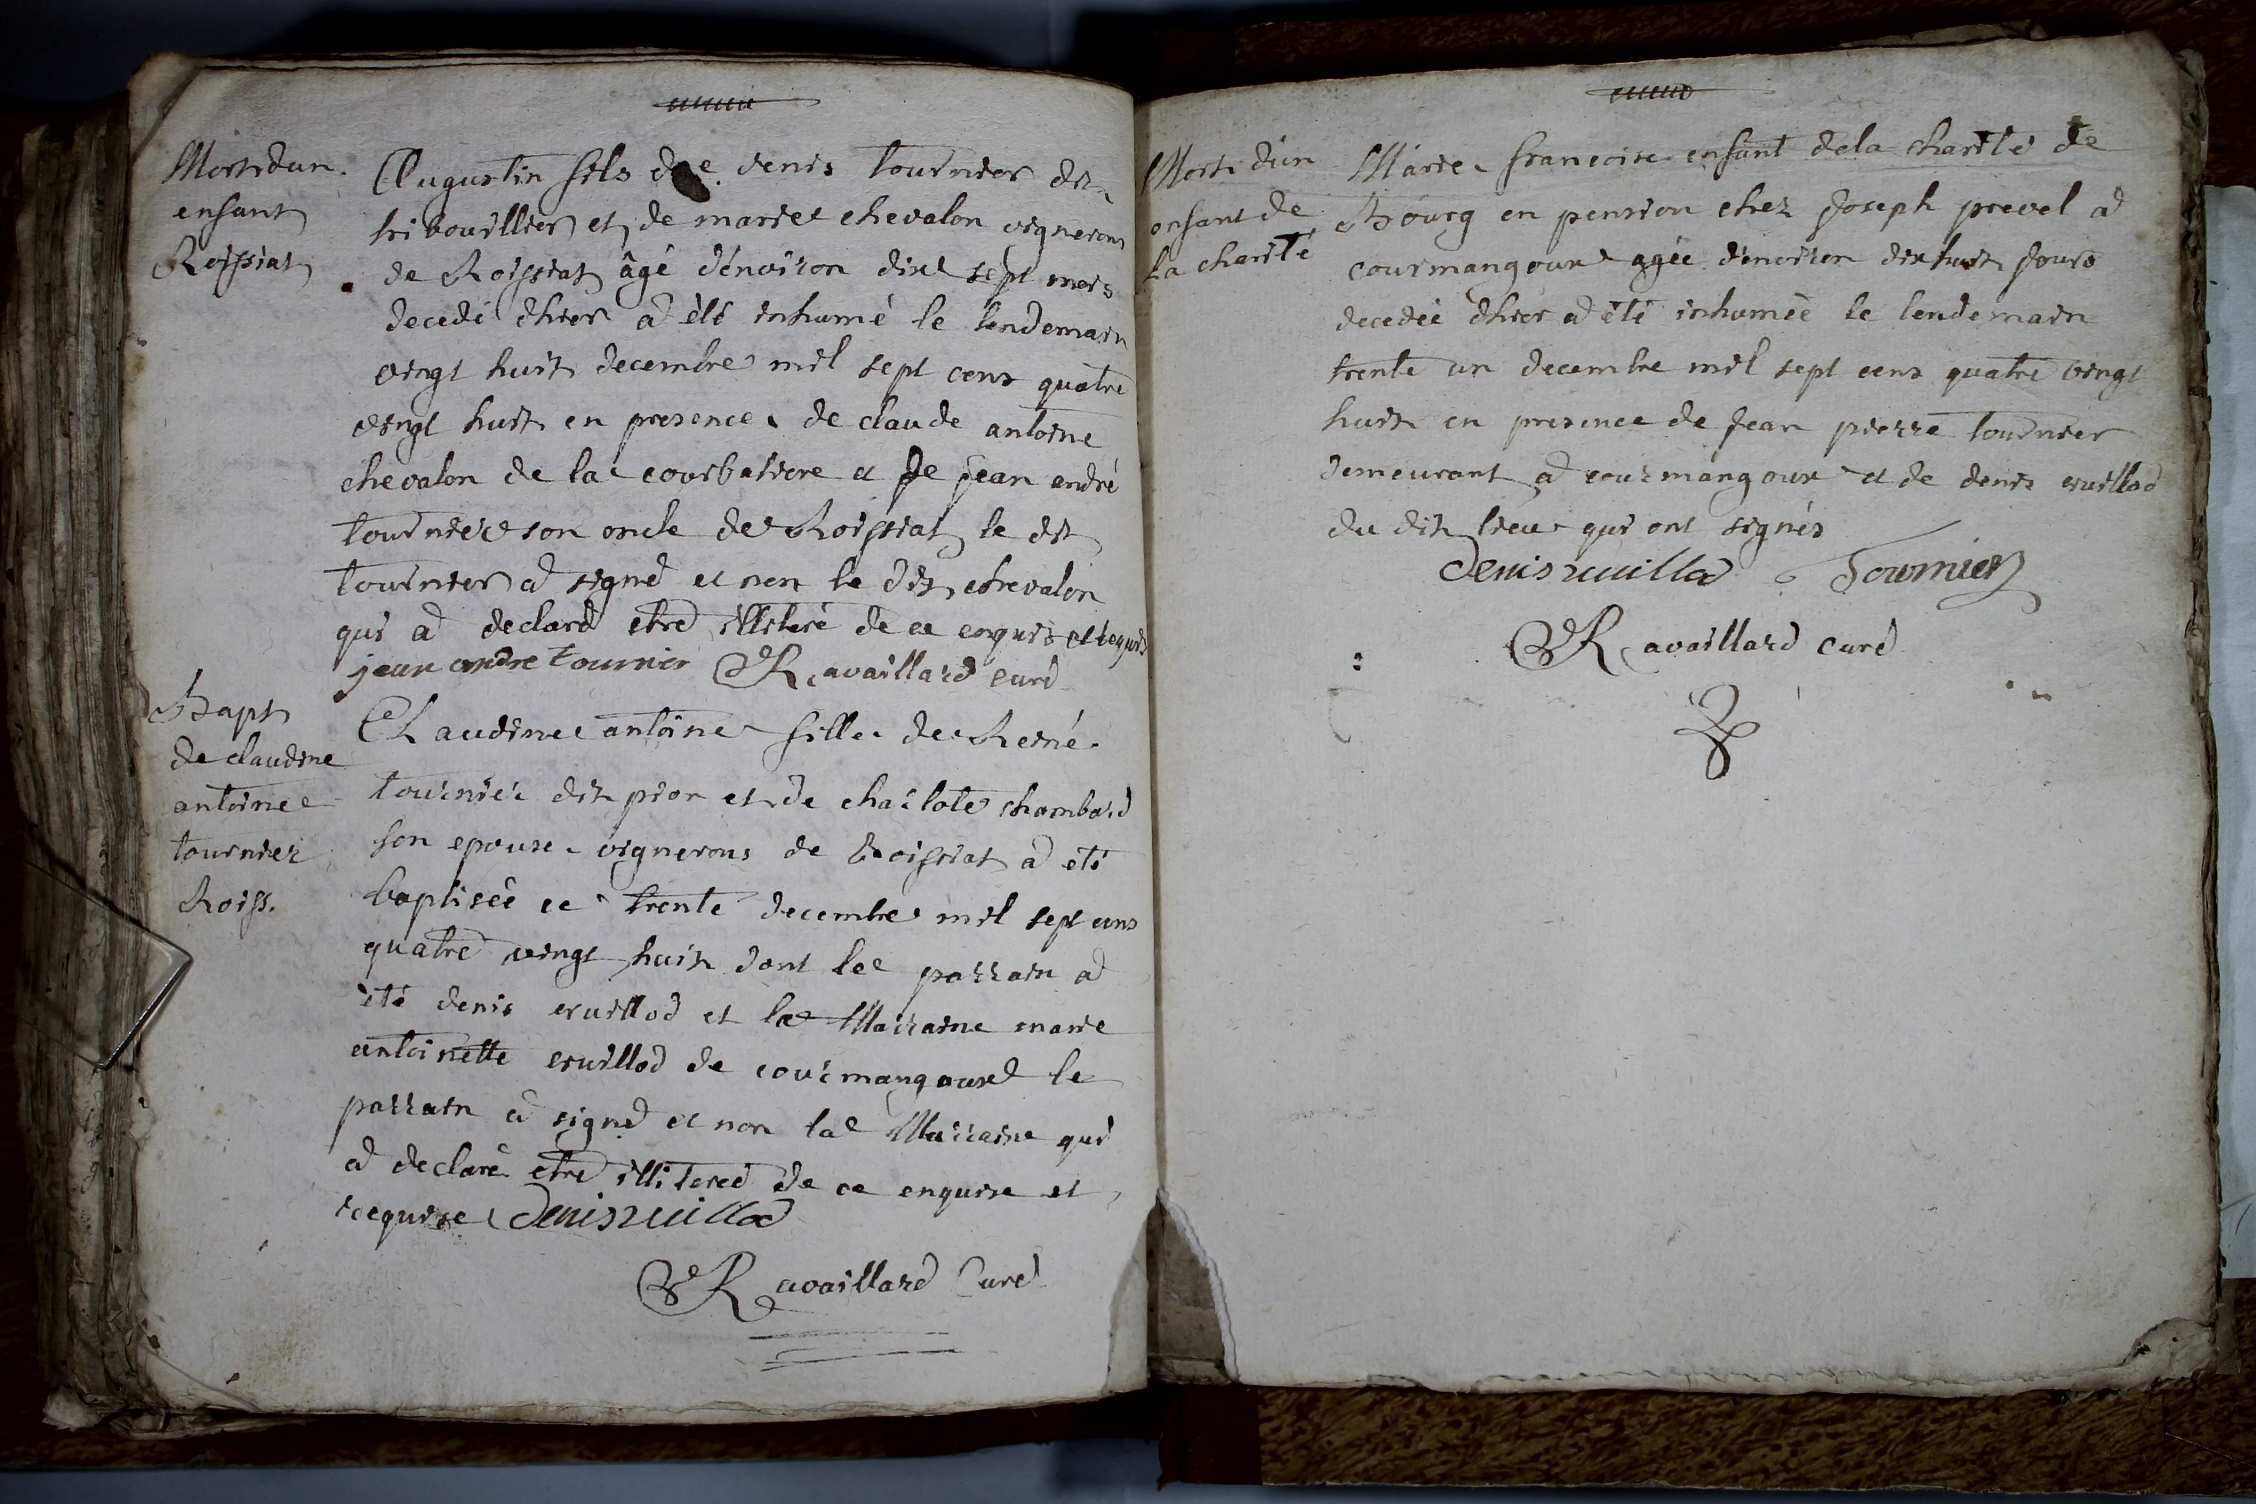 Mort dun
enfant
Roissiat
Augustin fils de denis tournier dit
tribouillier et de marie chevalon vignerons
de Roissiat âgé d'environ dixe sept mois
decedé d'hier a été inhumé le lendemain
vingt huit decembre mil sept cens quatre
vingt huit en presence de claude antoine
chevalon de la courbatiere et de jean andré
tournier son oncle de Roissiat le dit
tournier a signé et non le dit chevalon
qui a declaré etre illiteré de ce enquis et requis
jean andre tournier Ravaillard curé
Bapt
de claudine
antoine
tournier
Roiss.
Claudine antoine fille de René
tournier dit pior et de charlote chambard
son epouse vignerons de Roissiat a été
baptisée ce trente decembre mil sept cens
quatre vingt huit dont le parrain a
été denis eruillod et la Marraine marie
antoinette eruillod de courmangoux le
parrain a signé et non la Marraine qui
a declaré etre illiterée de ce enquise et
requise Denis ruillod
Ravaillard Curé
Mort d'un
enfant de
la charité
Marie francoise enfant de la charité de
Bourg en pension chez Joseph prevel a
courmangoux agée d'environ dix huit jours
decedée d'hier a été inhumée le lendemain
trente un decembre mil sept cens quatre vingt
huit en presence de Jean pierre tournier
demeurant a courmangoux et de denis eruillod
du dit lieu qui ont signés
Denis ruillod Tournier
Ravaillard curé